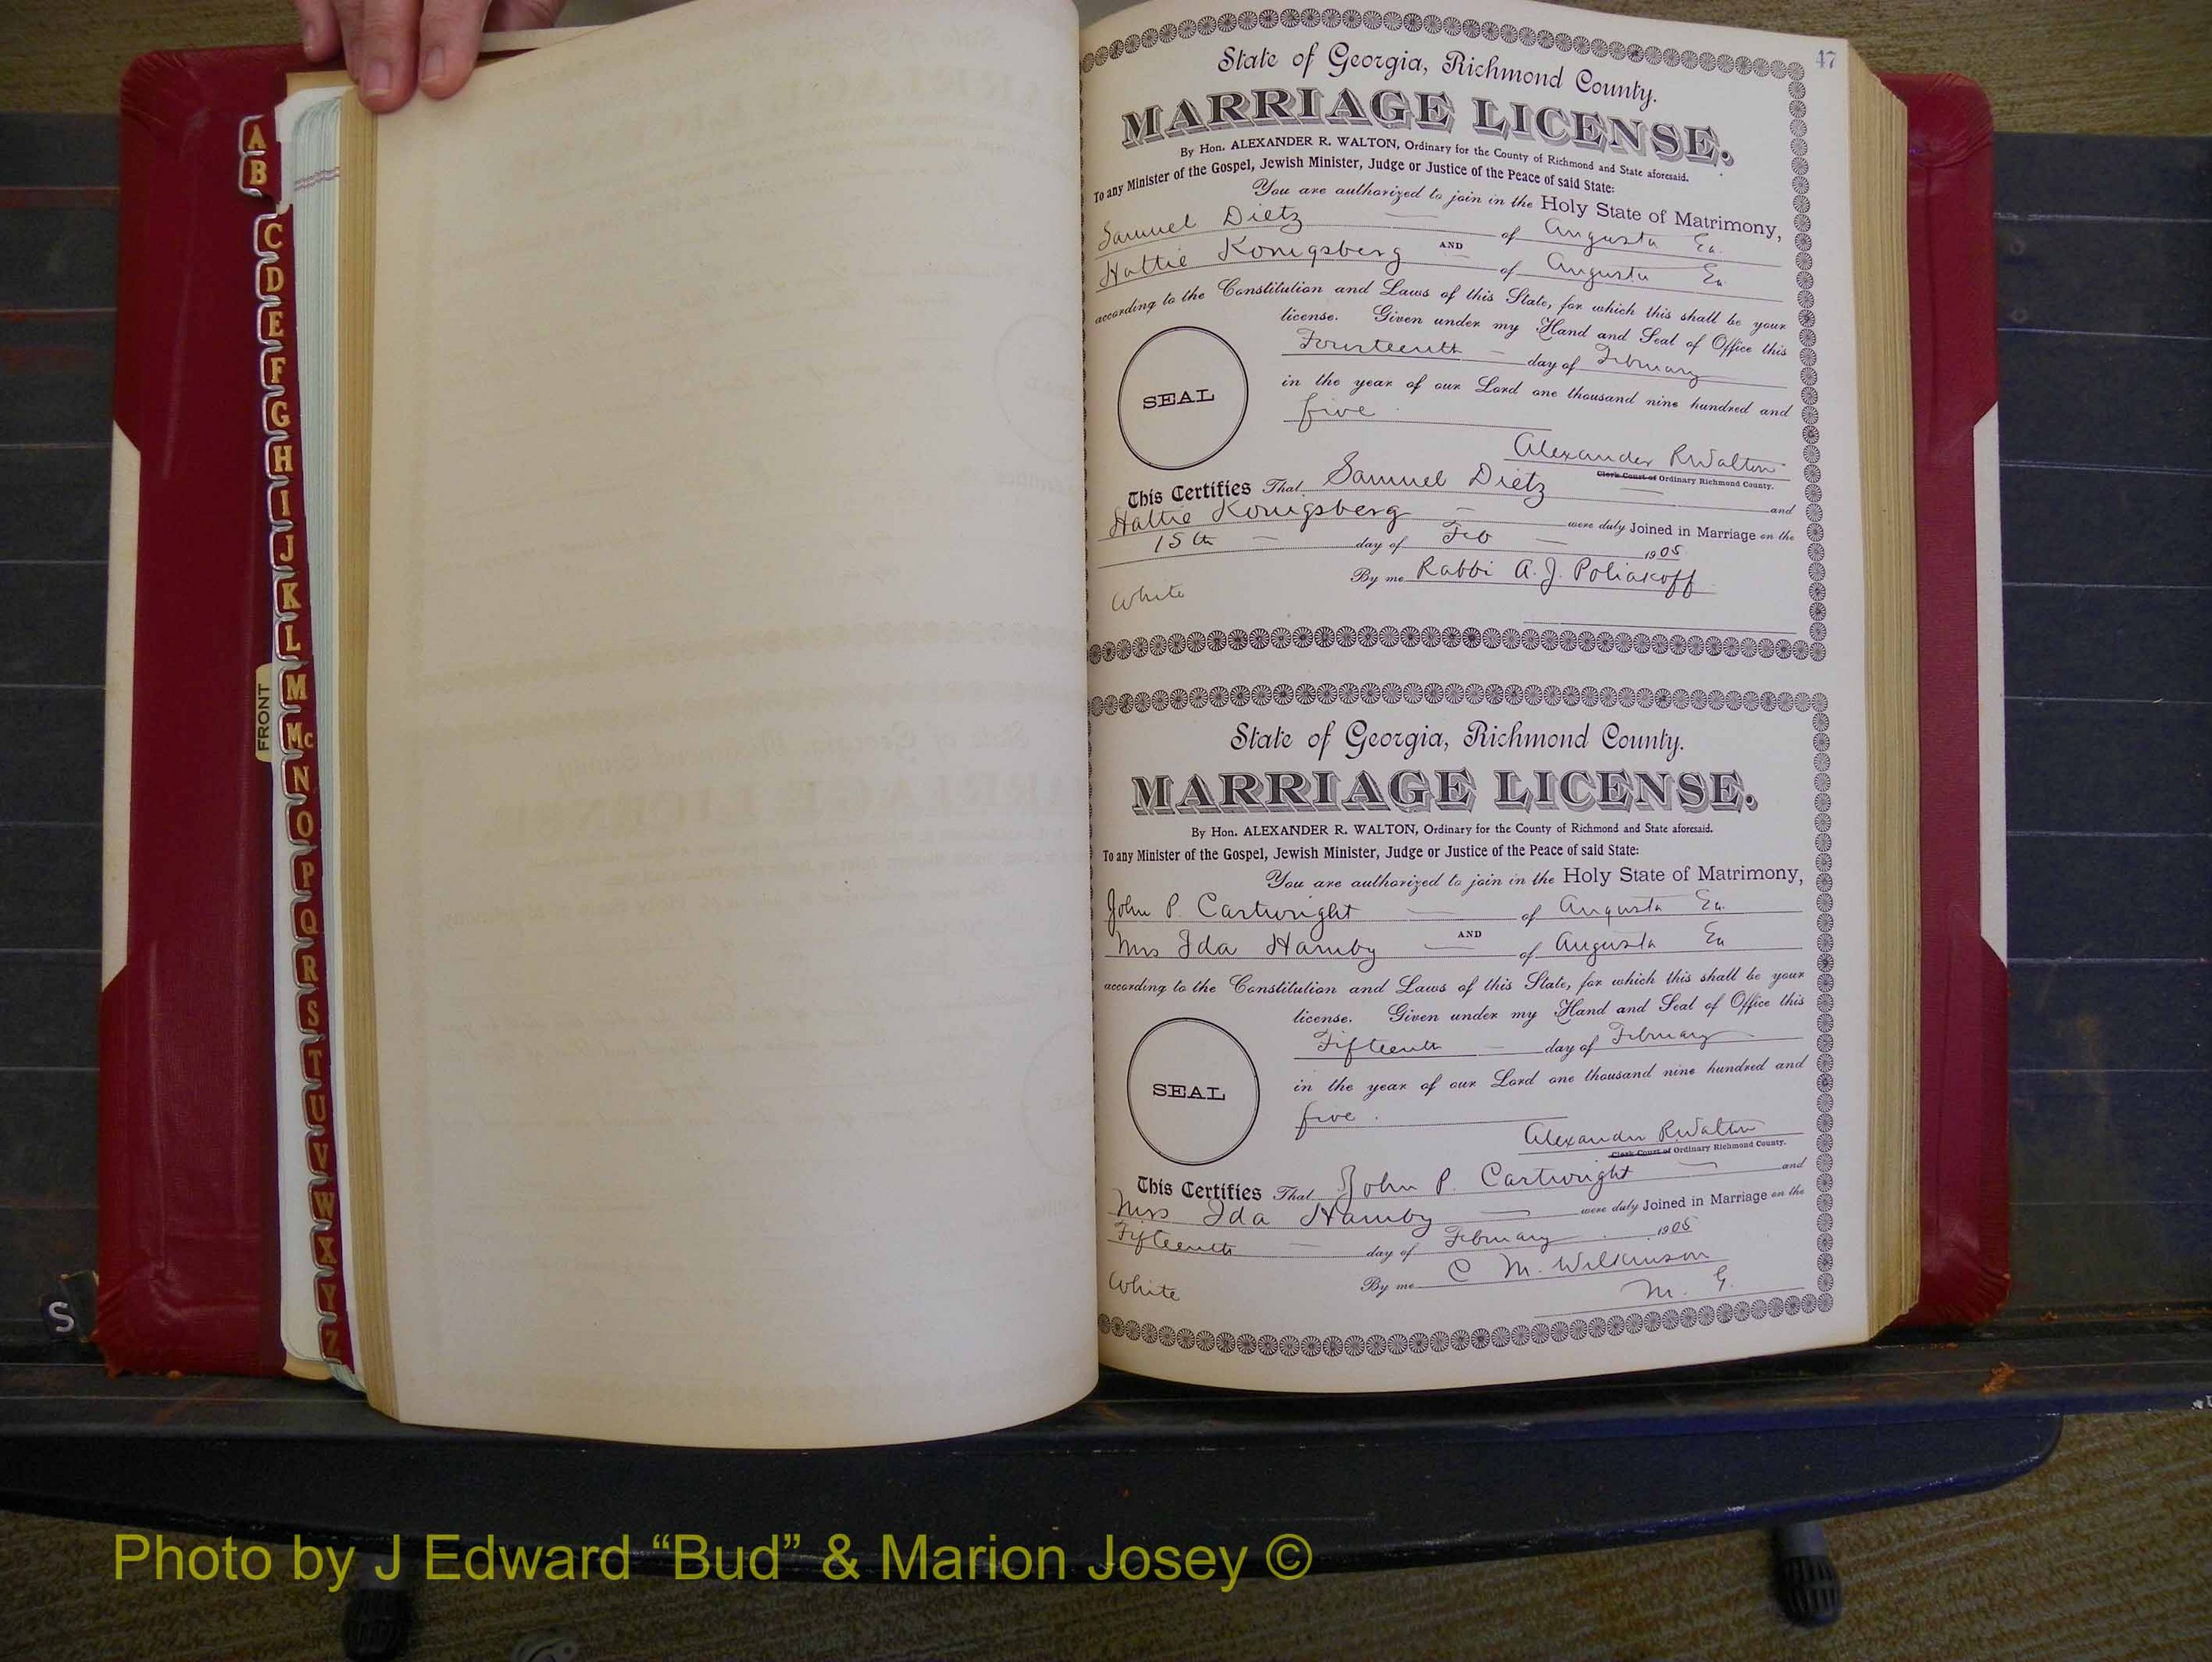 47
State of Georgia, Richmond County.
MARRIAGE LICENSE.
By Hon. ALEXANDER R. WALTON, Ordinary for the County of Richmond and State aforesaid.
To any Minister of the Gospel, Jewish Minister, Judge or Justice of the Peace of said State:
You are authorized to join in the Holy State of Matrimony,
Samuel Dietz of Augusta Ga.
AND
Hattie Konigsberg of Augusta Ga
according to the Constitution and Laws of this State, for which this shall be your
license. Given under my Hand and Seal of Office this
Fourteenth day of February
in the year of our Lord one thousand nine hundred and
five.
SEAL
Alexander R Walton
Clerk Court of Ordinary Richmond County.
This Certifies That Samuel Dietz and
Hattie Konigsberg were duly Joined in Marriage on the
15th day of Feb 1905
By me Rabbi A. J. Poliakoff
White
State of Georgia, Richmond County.
MARRIAGE LICENSE.
By Hon. ALEXANDER R. WALTON, Ordinary for the County of Richmond and State aforesaid.
To any Minister of the Gospel, Jewish Minister, Judge or Justice of the Peace of said State:
You are authorized to join in the Holy State of Matrimony,
John P. Cartwright of Augusta Ga.
AND
Mrs Ida Hamby of Augusta Ga
according to the Constitution and Laws of this State, for which this shall be your
license. Given under my Hand and Seal of Office this
Fifteenth day of February
in the year of our Lord one thousand nine hundred and
five.
SEAL
Alexander R. Walton
Clerk Court of Ordinary Richmond County.
This Certifies That John P. Cartwright and
Mrs Ida Hamby were duly Joined in Marriage on the
Fifteenth day of February 1905
By me C M. Wilkinson
M. G.
White
A
B
C
D
E
F
G
H
I
J
K
L
M
Mc
N
O
P
Q
R
S
T
U
V
W
X
Y
Z
FRONT
S
Photo by J Edward “Bud” & Marion Josey ©